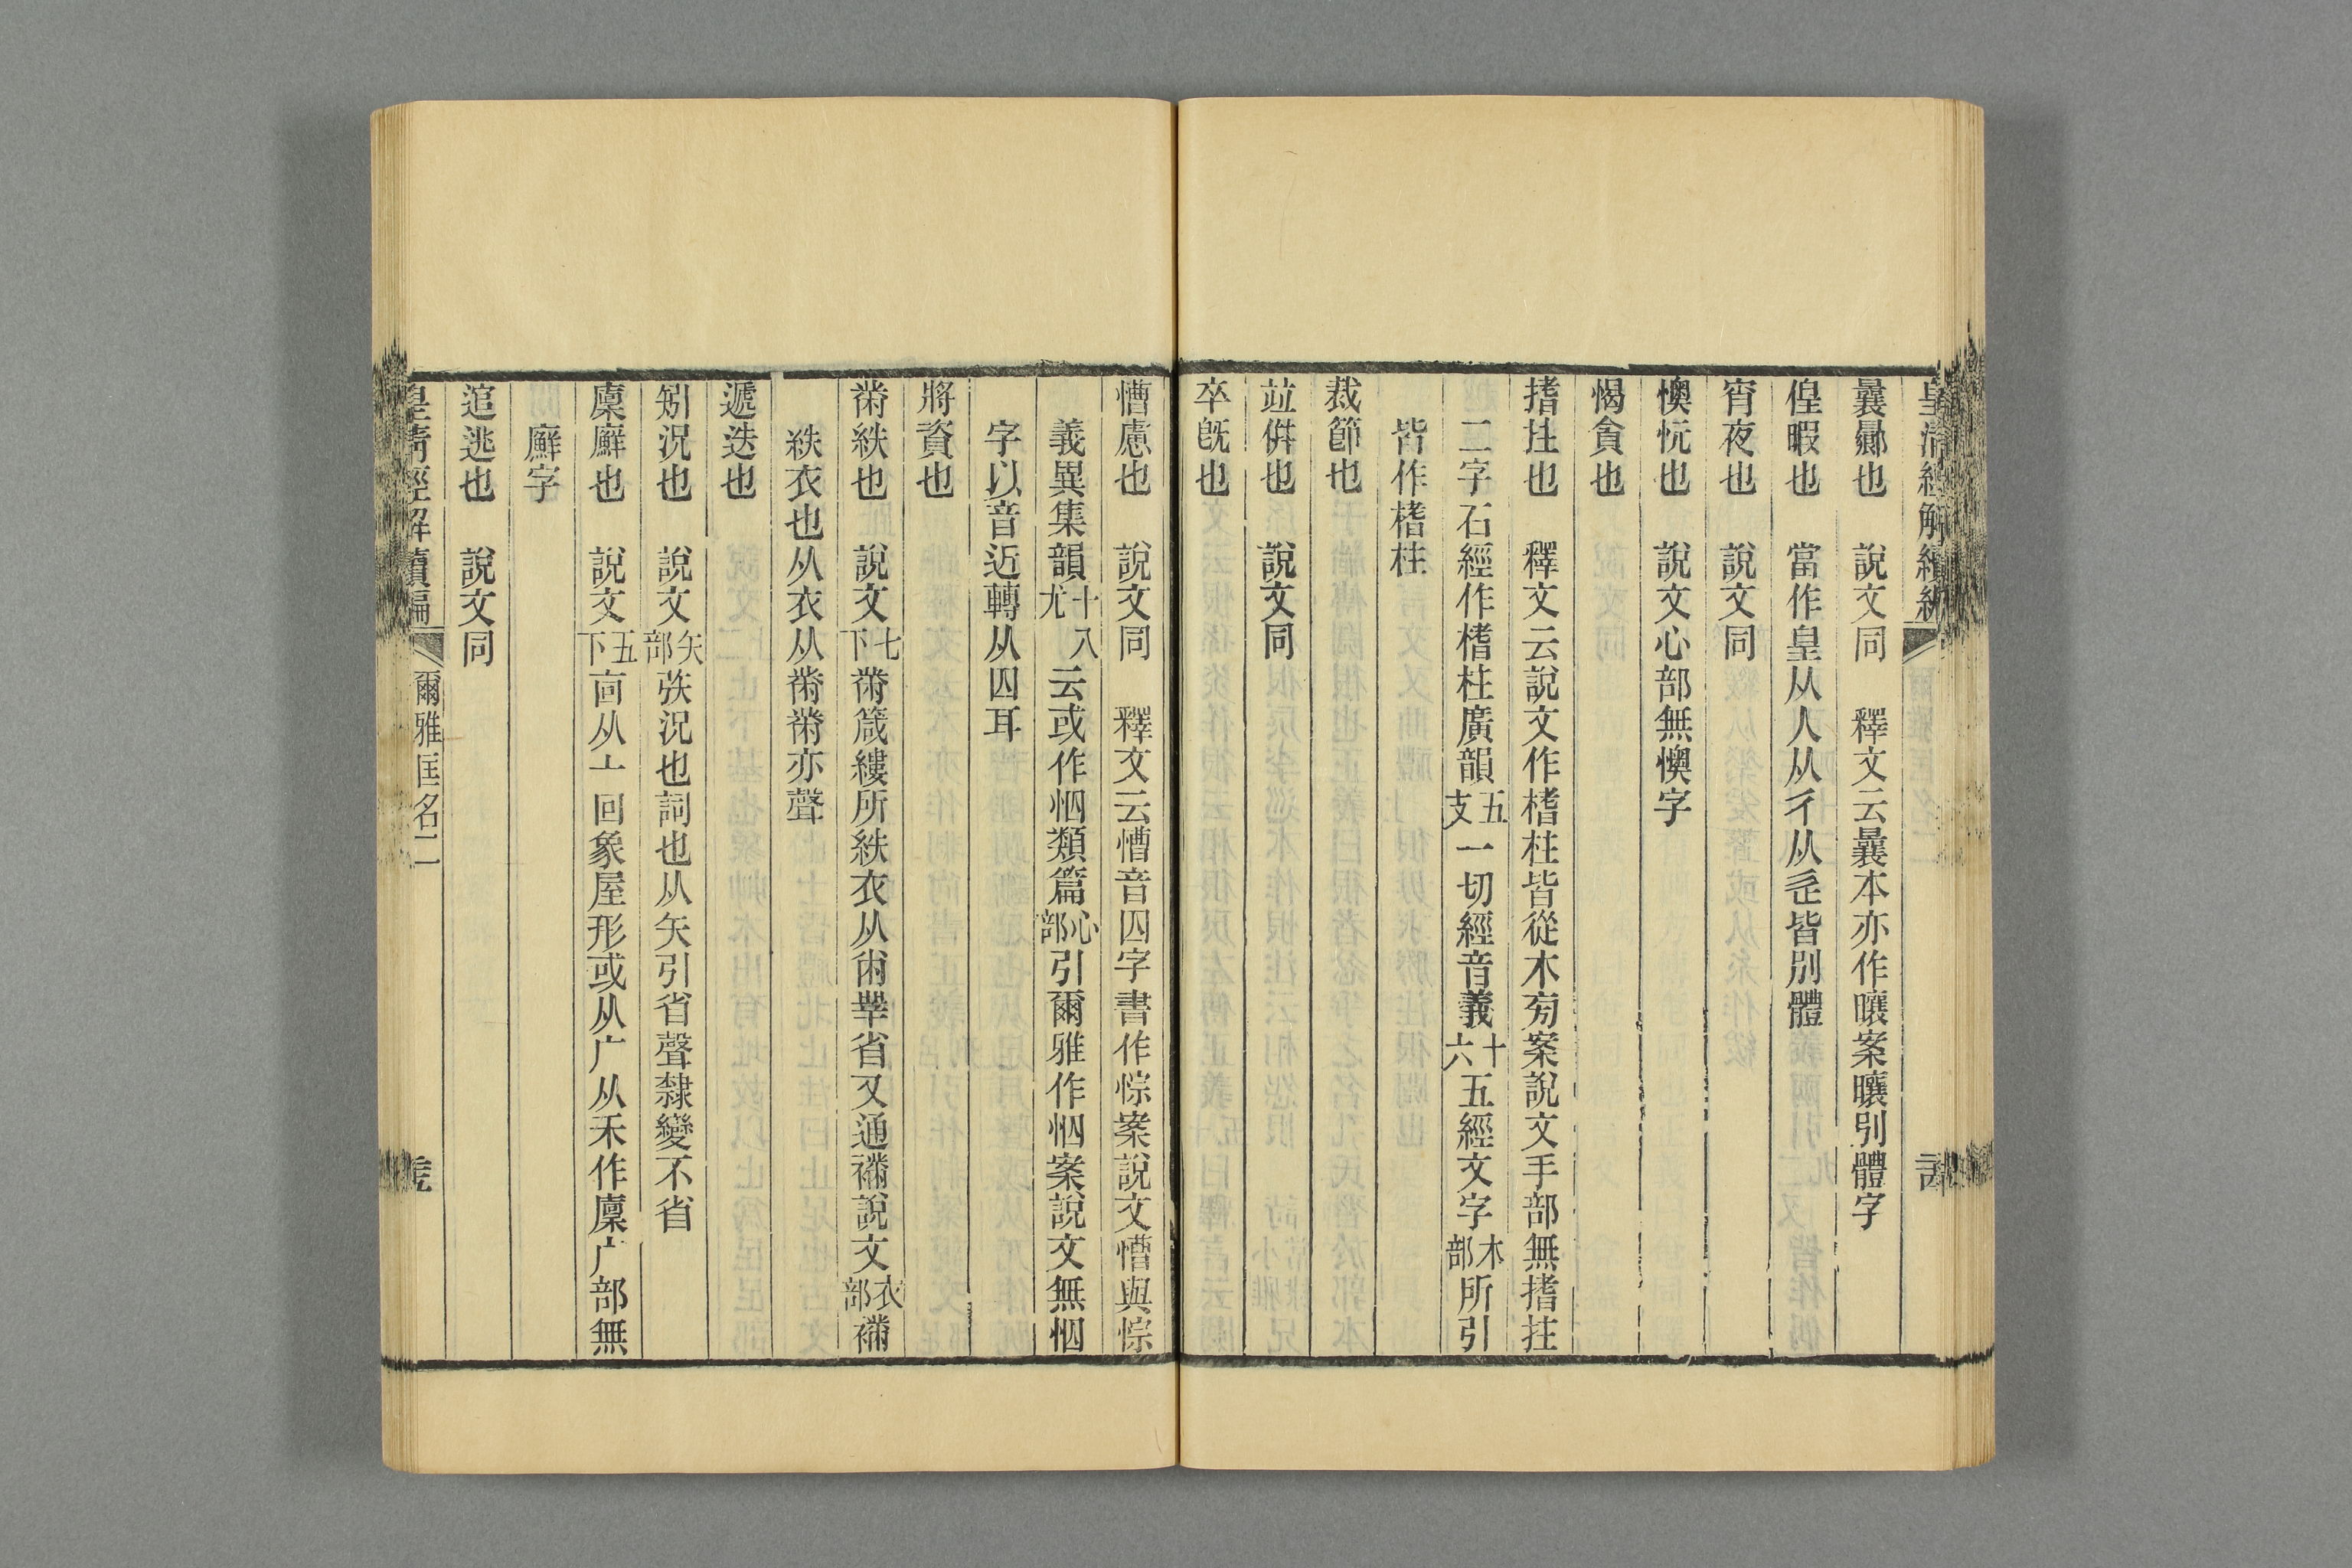 皇清經解續編
曩曏也　說文同　釋文云曩本亦作曩案曩別體字
偟暇也　當作皇从人从彳从辵皆別體
宵夜也　說文同
懊忨也　說文心部無懊字
愒貪也
搘拄也　釋文云說文作榰柱皆從木旁案說文手部無搘拄
二字石經作榰柱廣韻五支一切經音義十六五經文字木部所引
皆作榰柱
裁節也
竝倂也　說文同
卒旣也
慒慮也　說文同　釋文云慒音囚字書作悰案說文慒與悰
義異集韻十八尤云或作怬類篇心部引爾雅作怬案說文無怬
字以音近轉从四耳
將資也
黹紩也　說文七下黹箴縷所紩衣从㡀丵省又通襧說文衣部襧
紩衣也从衣从黹黹亦聲
遞迭也
矧況也　說文矢部矤況也詞也从矢引省聲隸變不省
廩廯也　說文五下㐭从亠回象屋形或从广从禾作廩广部無
廯字
逭逃也　說文同
皇清經解續編　爾雅匡名二